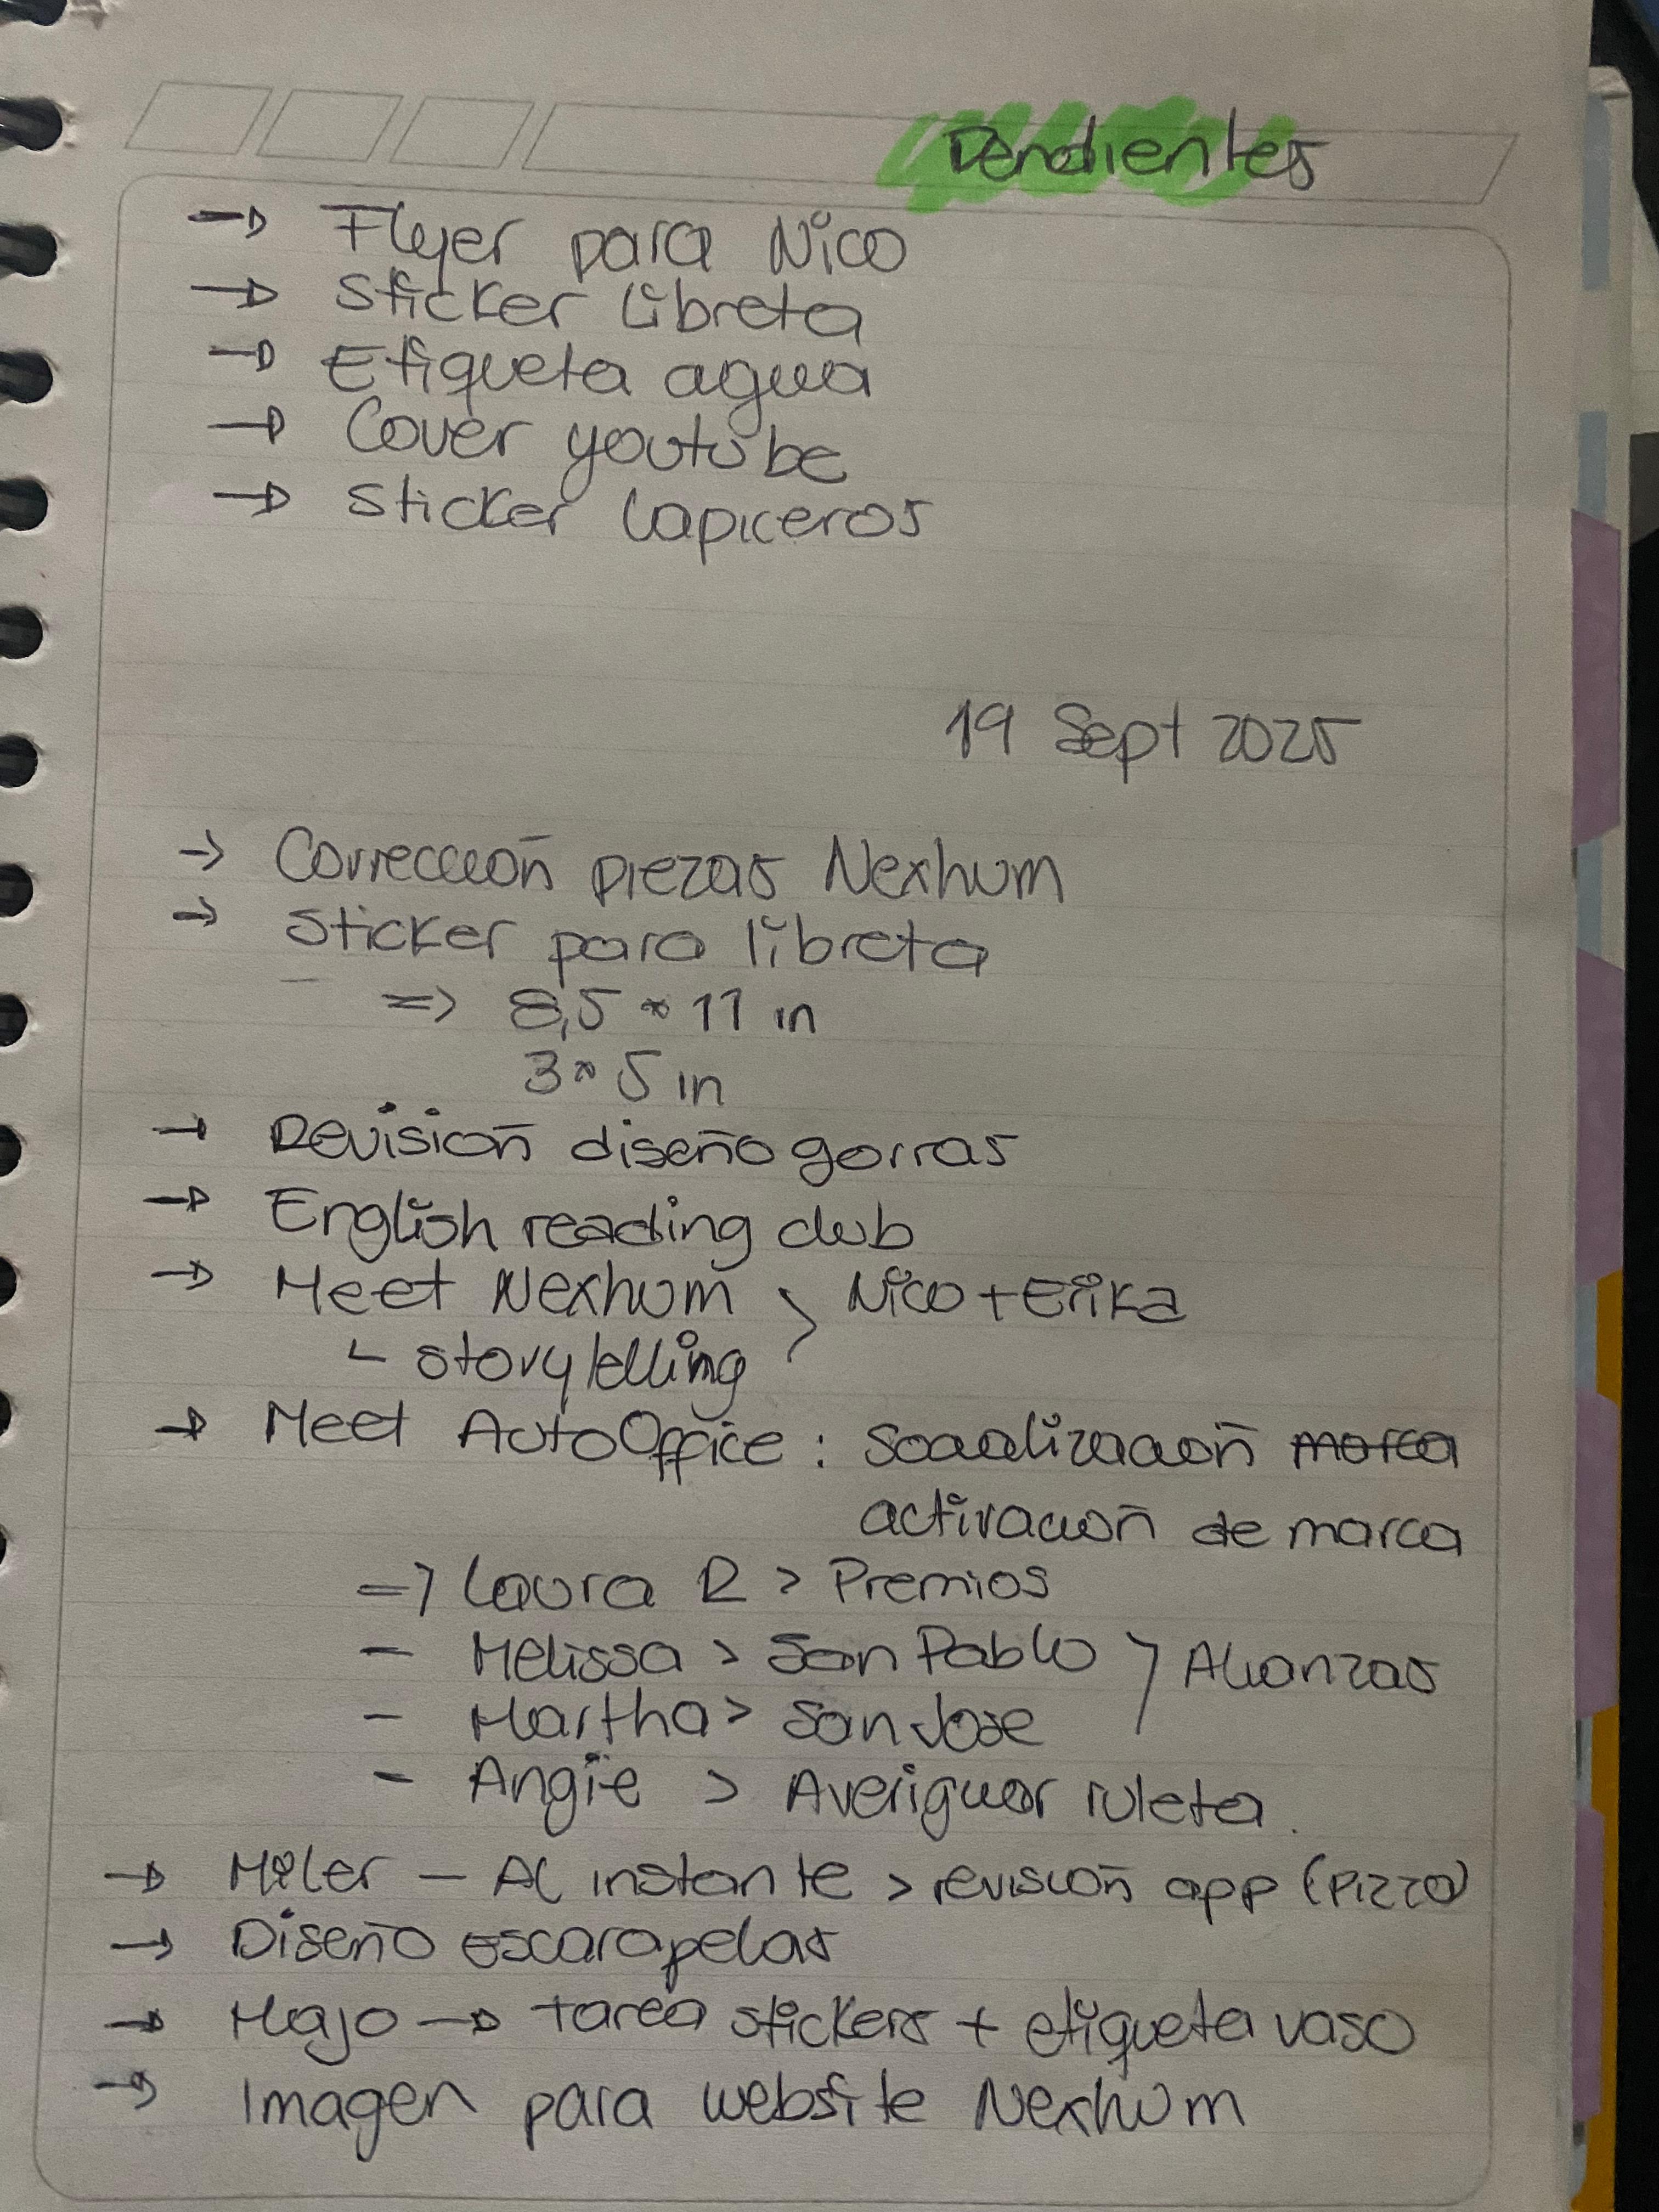 Pendientes
→ Flyer para Nico
→ Sticker libreta
→ Etiqueta agua
→ Cover youtube
→ Sticker lapiceros
19 Sept 2025
→ Corrección piezas Nexhum
→ Sticker para libreta
=> 8,5 * 11 in
3 * 5 in
→ Revisión diseño gorras
→ English reading club
→ Meet Nexhum > Nico + Erika
∟ storytelling
→ Meet AutoOffice : Socialización ~~marca~~
activación de marca
=> Laura R > Premios
- Melissa > San Pablo } Alianzas
- Martha > San Jose
- Angie > Averiguar ruleta.
→ Miler — Al instante > revisión app (Pizza)
→ Diseño escarapelas
→ Majo → tarea stickers + etiqueta vaso
→ Imagen para website Nexhum